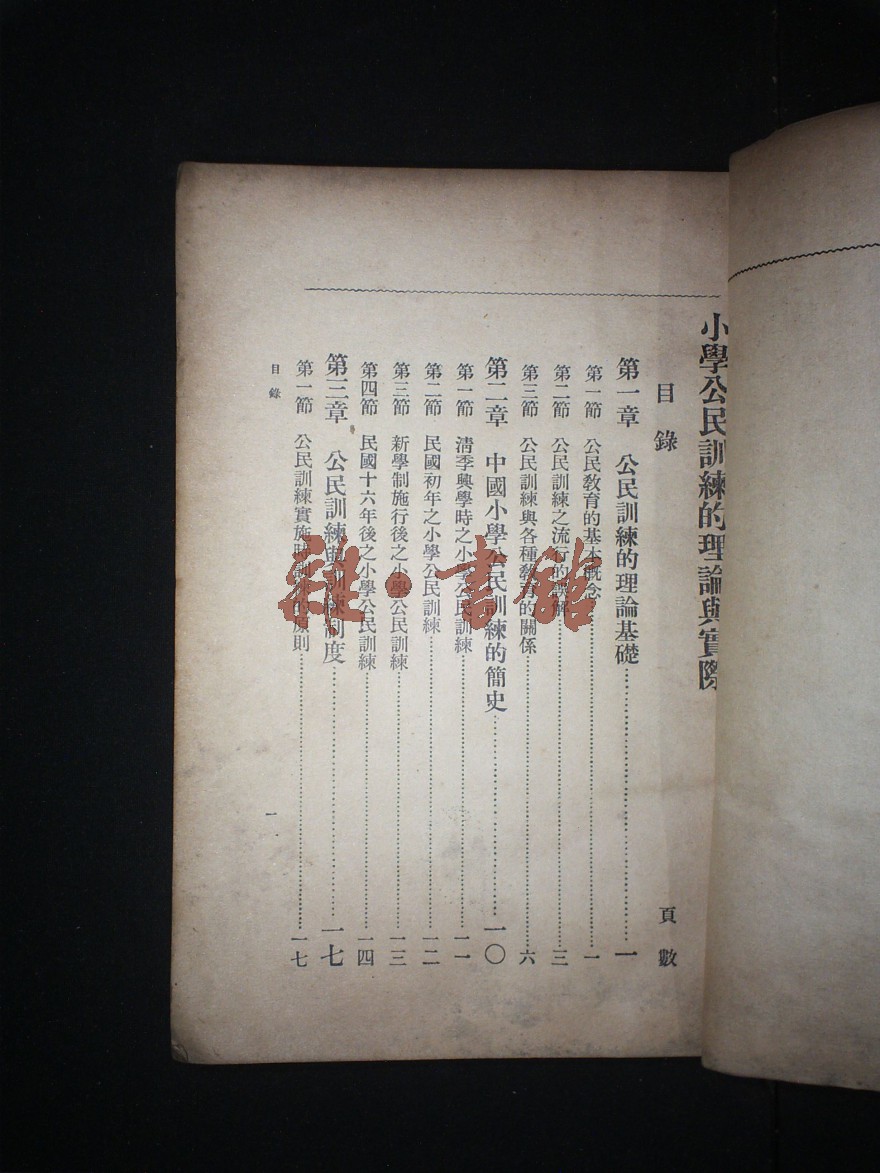 小學公民訓練的理論與實際
目錄 頁數
第一章 公民訓練的理論基礎 一
第一節 公民教育的基本概念 一
第二節 公民訓練之流行的誤解 三
第三節 公民訓練與各種教育的關係 六
第二章 中國小學公民訓練的簡史 一〇
第一節 清季興學時之小學公民訓練 一一
第二節 民國初年之小學公民訓練 一二
第三節 新學制施行後之小學公民訓練 一三
第四節 民國十六年後之小學公民訓練 一四
第三章 公民訓練與訓練制度 一七
第一節 公民訓練實施時訓練的原則 一七
目錄 一
雜·書館